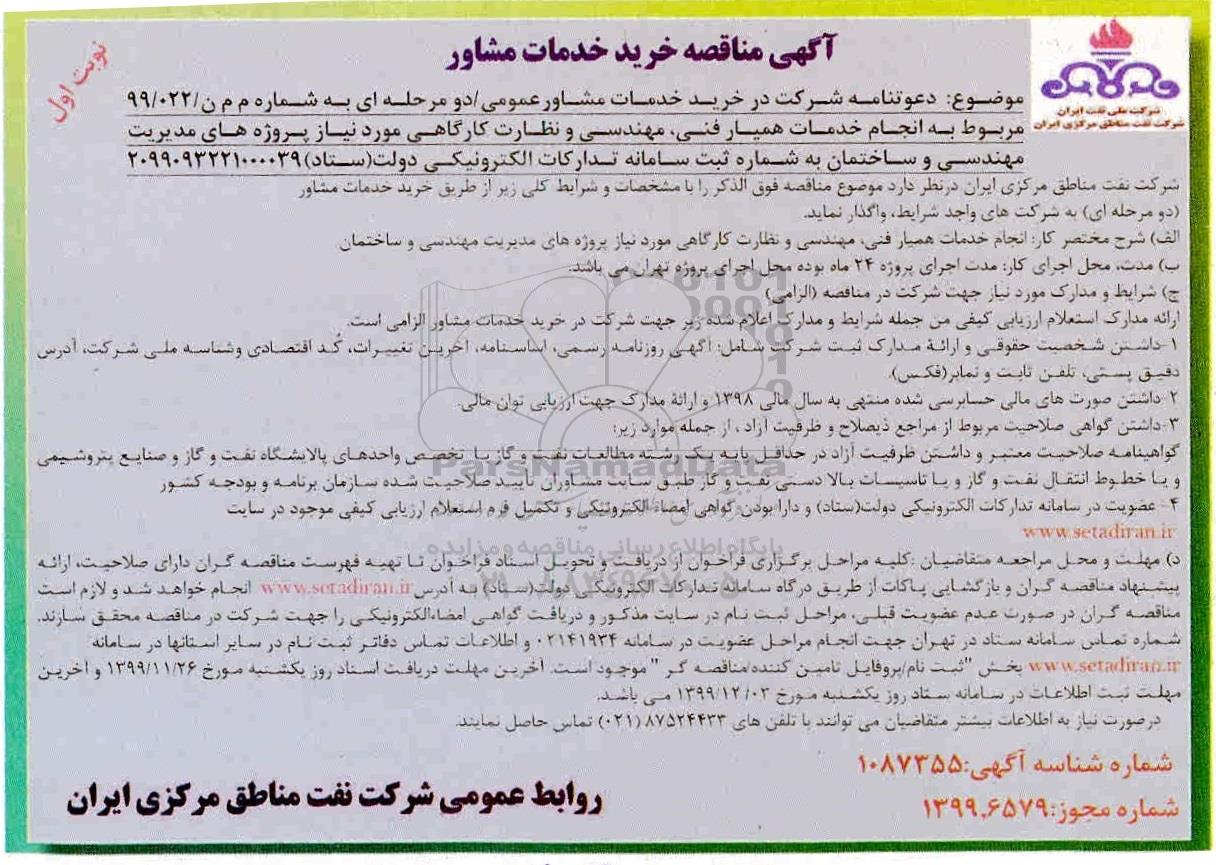 آگهی مناقصه خرید خدمات مشاور
نوبت اول
شرکت ملی نفت ایران
شرکت نفت مناطق مرکزی ایران
موضوع: دعوتنامه شرکت در خرید خدمات مشاور عمومی/دو مرحله ای به شماره م م ن/۹۹/۰۲۲
مربوط به انجام خدمات همیار فنی، مهندسی و نظارت کارگاهی مورد نیاز پروژه های مدیریت
مهندسی و ساختمان به شماره ثبت سامانه تدارکات الکترونیکی دولت(ستاد)۲۰۹۹۰۹۳۲۲۱۰۰۰۰۳۹
شرکت نفت مناطق مرکزی ایران درنظر دارد موضوع مناقصه فوق الذکر را با مشخصات و شرایط کلی زیر از طریق خرید خدمات مشاور
(دو مرحله ای) به شرکت های واجد شرایط، واگذار نماید.
الف) شرح مختصر کار: انجام خدمات همیار فنی، مهندسی و نظارت کارگاهی مورد نیاز پروژه های مدیریت مهندسی و ساختمان
ب) مدت، محل اجرای کار: مدت اجرای پروژه ۲۴ ماه بوده محل اجرای پروژه تهران می باشد.
ج) شرایط و مدارک مورد نیاز جهت شرکت در مناقصه (الزامی)
ارائه مدارک استعلام ارزیابی کیفی من جمله شرایط و مدارک اعلام شده زیر جهت شرکت در خرید خدمات مشاور الزامی است.
۱-داشتن شخصیت حقوقی و ارائة مدارک ثبت شرکت شامل: آگهی روزنامه رسمی، اساسنامه، آخرین تغییرات، کُد اقتصادی وشناسه ملی شرکت، آدرس
دقیق پستی، تلفن ثابت و نمابر(فکس).
۲-داشتن صورت های مالی حسابرسی شده منتهی به سال مالی ۱۳۹۸ و ارائة مدارک جهت ارزیابی توان مالی.
۳-داشتن گواهی صلاحیت مربوط از مراجع ذیصلاح و ظرفیت آزاد ، از جمله موارد زیر:
گواهینامه صلاحیت معتبر و داشتن ظرفیت آزاد در حداقل پایه یک رشته مطالعات نفت و گاز با تخصص واحدهای پالایشگاه نفت و گاز و صنایع پتروشیمی
و یا خطوط انتقال نفت و گاز و یا تاسیسات بالا دستی نفت و گاز طبق سایت مشاوران تأیید صلاحیت شده سازمان برنامه و بودجه کشور
۴- عضویت در سامانه تدارکات الکترونیکی دولت(ستاد) و دارا بودن گواهی امضاء الکترونیکی و تکمیل فرم استعلام ارزیابی کیفی موجود در سایت
www.setadiran.ir
د) مهلت و محل مراجعه متقاضیان :کلیه مراحل برگزاری فراخوان از دریافت و تحویل اسناد فراخوان تا تهیه فهرست مناقصه گران دارای صلاحیت، ارائه
پیشنهاد مناقصه گران و بازگشایی پاکات از طریق درگاه سامانه تدارکات الکترونیکی دولت(ستاد) به آدرس www.setadiran.ir انجام خواهد شد و لازم است
مناقصه گران در صورت عدم عضویت قبلی، مراحل ثبت نام در سایت مذکور و دریافت گواهی امضاءالکترونیکی را جهت شرکت در مناقصه محقق سازند.
شماره تماس سامانه ستاد در تهران جهت انجام مراحل عضویت در سامانه ۰۲۱۴۱۹۳۴ و اطلاعات تماس دفاتر ثبت نام در سایر استانها در سامانه
www.setadiran.ir بخش "ثبت نام/پروفایل تامین کننده/مناقصه گر " موجود است. آخرین مهلت دریافت اسناد روز یکشنبه مورخ ۱۳۹۹/۱۱/۲۶ و آخرین
مهلت ثبت اطلاعات در سامانه ستاد روز یکشنبه مورخ ۱۳۹۹/۱۲/۰۳ می باشد.
درصورت نیاز به اطلاعات بیشتر متقاضیان می توانند با تلفن های ۸۷۵۲۴۴۳۳ (۰۲۱) تماس حاصل نمایند.
شماره شناسه آگهی:۱۰۸۷۳۵۵
شماره مجوز:۱۳۹۹.۶۵۷۹
روابط عمومی شرکت نفت مناطق مرکزی ایران
ParsNamadData
پایگاه اطلاع رسانی مناقصه و مزایده